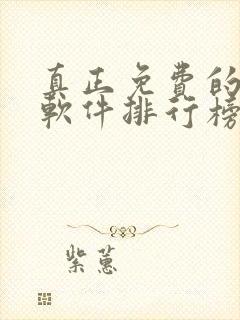 真正免費的
軟件排行榜
紫蕙